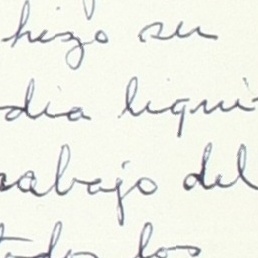 hizo su
dia liqui
rabajo del
todos los